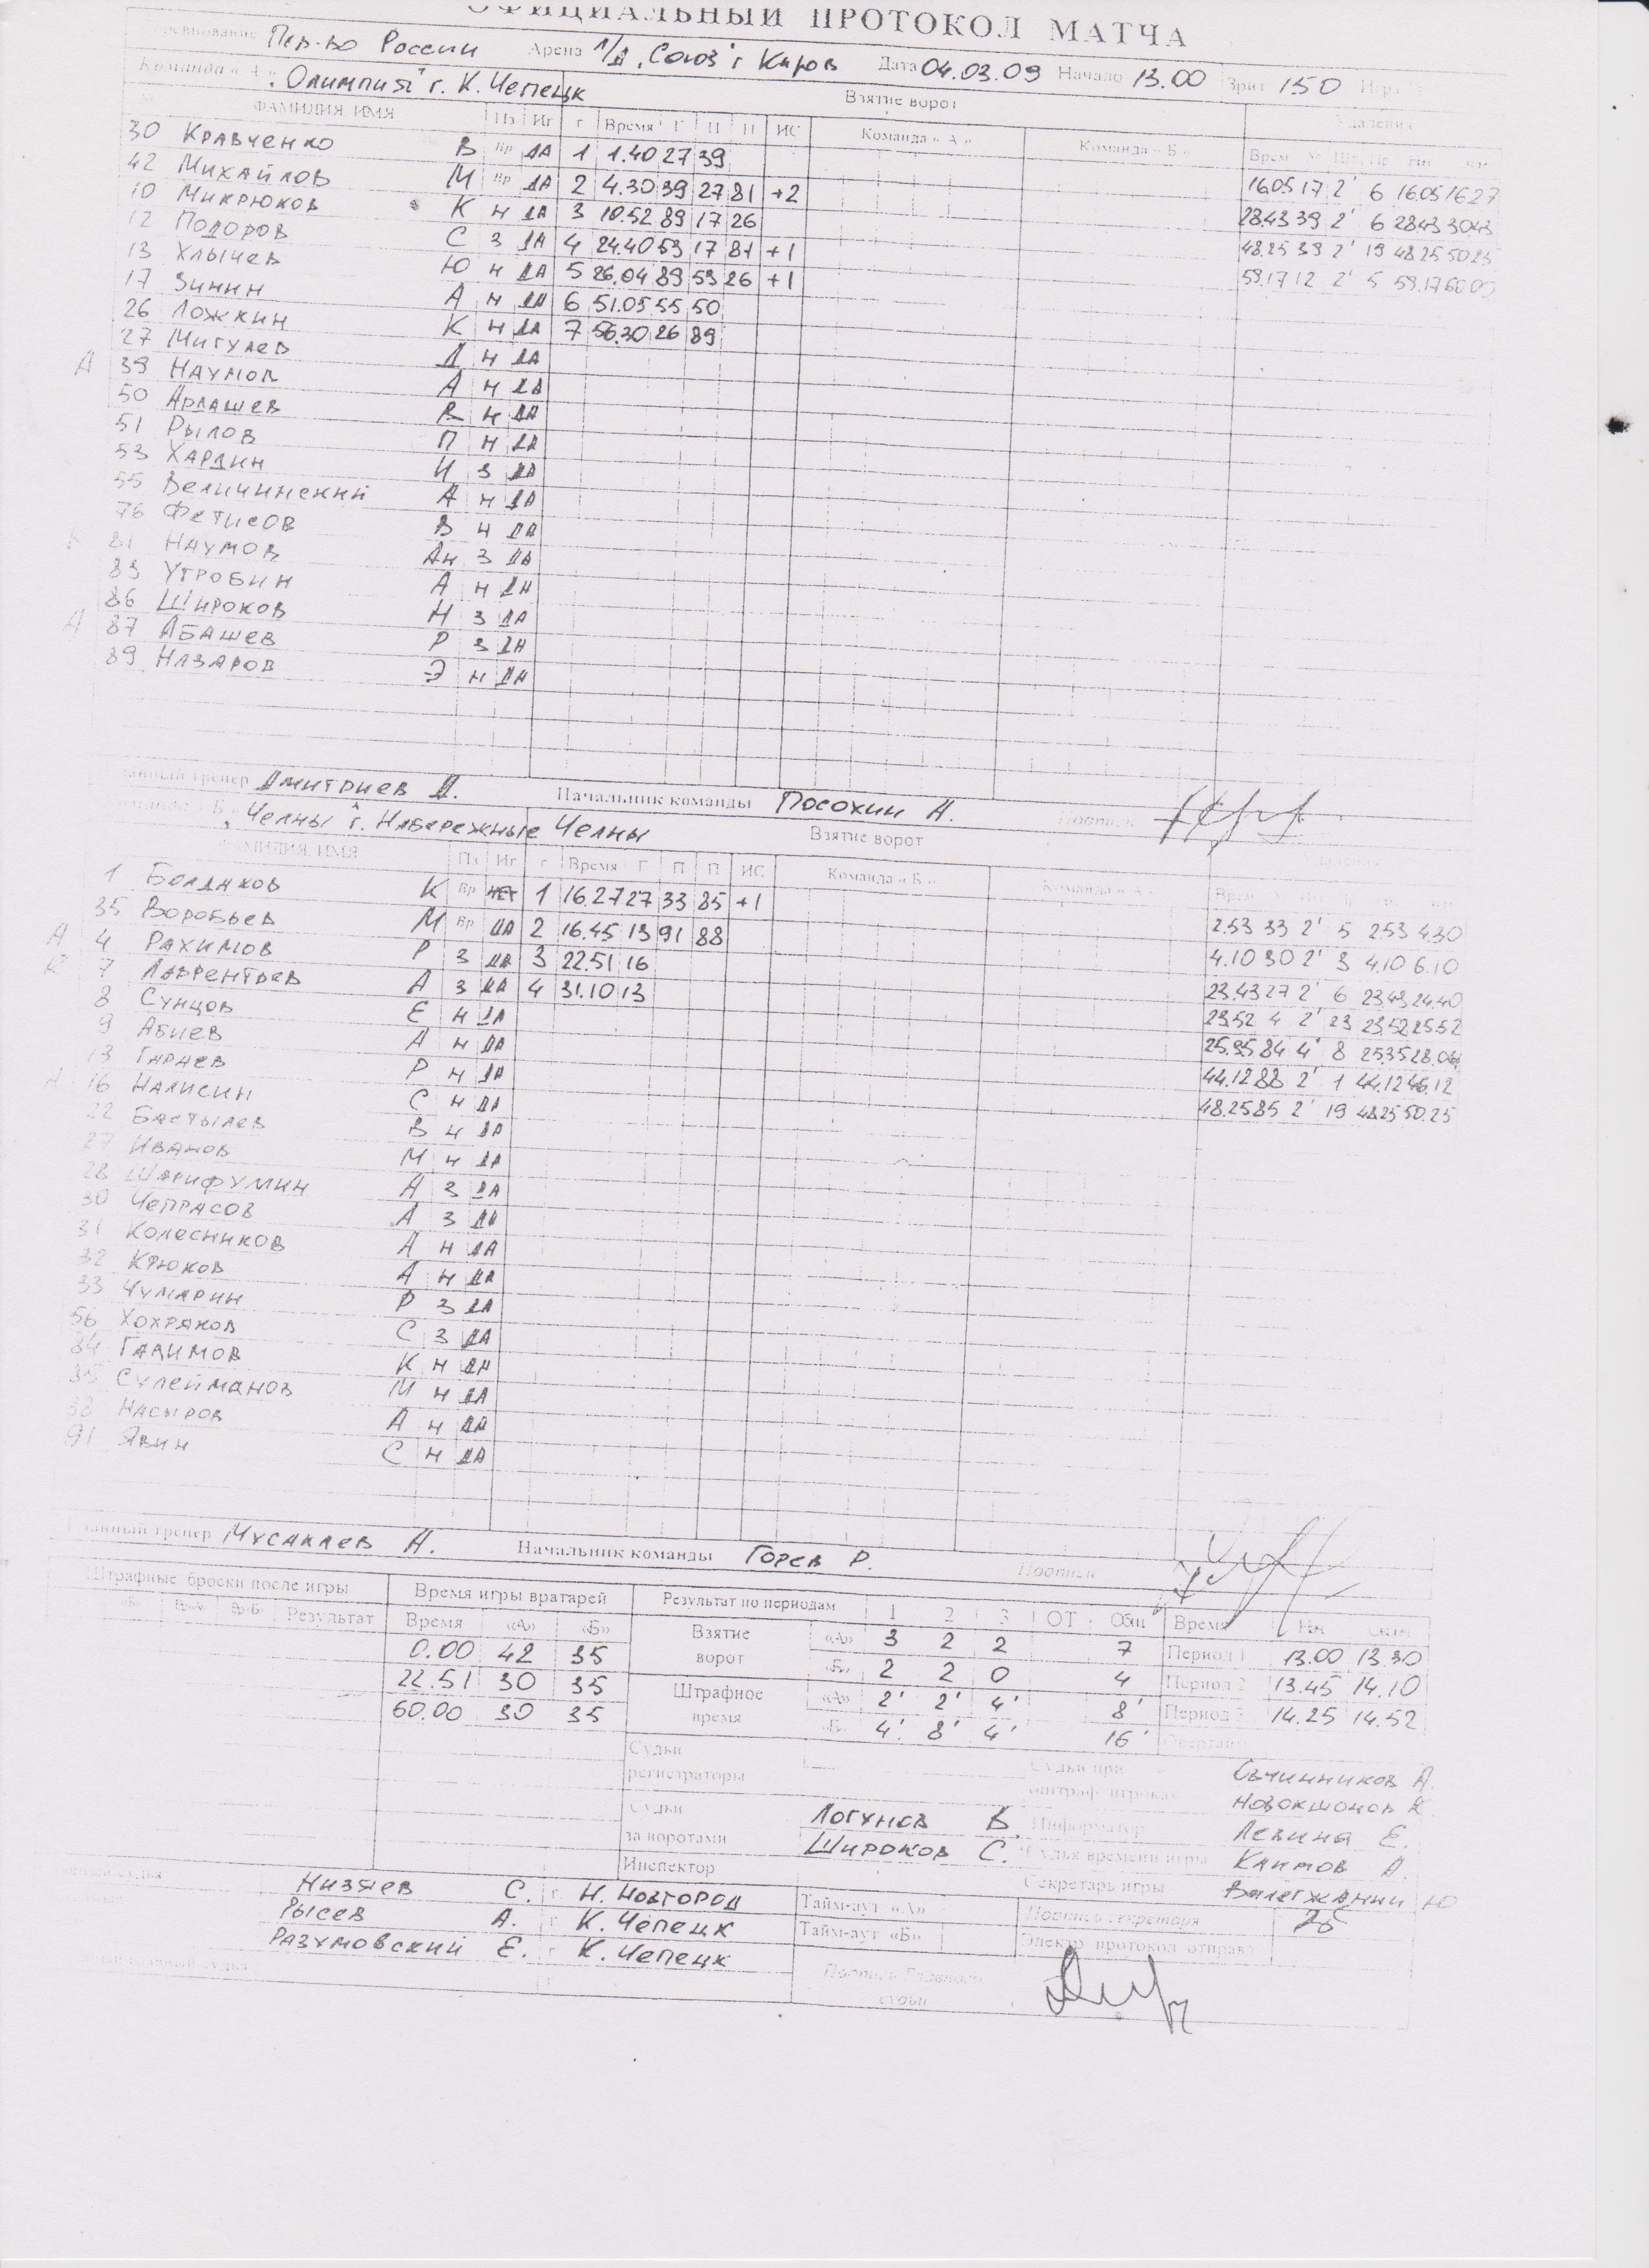 ОФИЦИАЛЬНЫЙ ПРОТОКОЛ МАТЧА
Пер-во России Арена Л/Д "Союз" г Киров Дата 04.03.09 Начало 13.00 Зрит 150
Команда «А» "Олимпия" г. К. Чепецк Взятие ворот
ФАМИЛИЯ ИМЯ Пз Иг г Время Г П П ИС Команда «А» Команда «Б» Удаления
30 Кравченко В Вр ДА 1 1.40 27 39
42 Михайлов М Вр ДА 2 4.30 39 27 81 +2 16.05 17 2' 6 16.05 16.27
10 Микрюков К Н ДА 3 10.52 89 17 26 28.43 39 2' 6 28.43 30.43
12 Подоров С З ДА 4 24.40 53 17 81 +1 48.25 39 2' 19 48.25 50.25
13 Хлычев Ю Н ДА 5 26.04 89 53 26 +1 59.17 12 2' 5 59.17 60.00
17 Зинин А Н ДА 6 51.05 55 50
26 Ложкин К Н ДА 7 56.30 26 89
27 Мигулев Д Н ДА
А 39 Наумов А Н ДА
50 Ардашев В Н ДА
51 Рылов П Н ДА
53 Хардин И З ДА
55 Величинский А Н ДА
76 Фетисов В Н ДА
К 81 Наумов Ан З ДА
83 Утробин А Н ДА
86 Широков Н З ДА
А 87 Абашев Р З ДА
89 Назаров Э Н ДА
Главный тренер Дмитриев Д. Начальник команды Посохин А. Подпись
Команда «Б» "Челны" г. Набережные Челны Взятие ворот
ФАМИЛИЯ ИМЯ Пз Иг г Время Г П П ИС Команда «Б» Команда «А»
1 Болдаков К Вр НЕТ 1 16.27 27 33 85 +1
35 Воробьев М Вр ДА 2 16.45 13 91 88 2.53 33 2' 5 2.53 4.30
А 4 Рахимов Р З ДА 3 22.51 16 4.10 30 2' 3 4.10 6.10
К 7 Лаврентьев А З ДА 4 31.10 13 23.43 27 2' 6 23.43 24.40
8 Сунцов Е Н ДА 23.52 4 2' 23 23.52 25.52
9 Абиев А Н ДА 25.35 84 4' 8 25.35 28.04
13 Гараев Р Н ДА 44.12 88 2' 1 44.12 46.12
А 16 Налисин С Н ДА 48.25 85 2' 19 48.25 50.25
22 Бастылев В Н ДА
27 Иванов М Н ДА
28 Шарифулин А З ДА
30 Чепрасов А З ДА
31 Колесников А Н ДА
32 Крюков А Н ДА
33 Чумарин Р З ДА
56 Хохряков С З ДА
84 Газимов К Н ДА
85 Сулейманов М Н ДА
88 Насыров А Н ДА
91 Явин С Н ДА
Главный тренер Мусакаев А. Начальник команды Горев Р. Подпись
Штрафные броски после игры Время игры вратарей Результат по периодам 1 2 3 ОТ Общ Время Нач Оконч
Результат Время «А» «Б» Взятие ворот «А» 3 2 2 7 Период 1 13.00 13.30
0.00 42 35 «Б» 2 2 0 4 Период 2 13.45 14.10
22.51 30 35 Штрафное время «А» 2' 2' 4' 8' Период 3 14.25 14.52
60.00 30 35 «Б» 4' 8' 4' 16' Овертайм
Судьи регистраторы Судьи при оштраф. игроках Овчинников А.
Новокшонов К
Судьи за воротами Логунов В. Информатор Левина Е.
Широков С. Судья времени игры Климов А.
Инспектор Секретарь игры Валегжанин Ю
Низяев С. г. Н. Новгород Тайм-аут «А» Подпись секретаря
Рысев А. г К. Чепецк Тайм-аут «Б» Электр. протокол отправл
Разумовский Е. г К. Чепецк Подпись Главного судьи